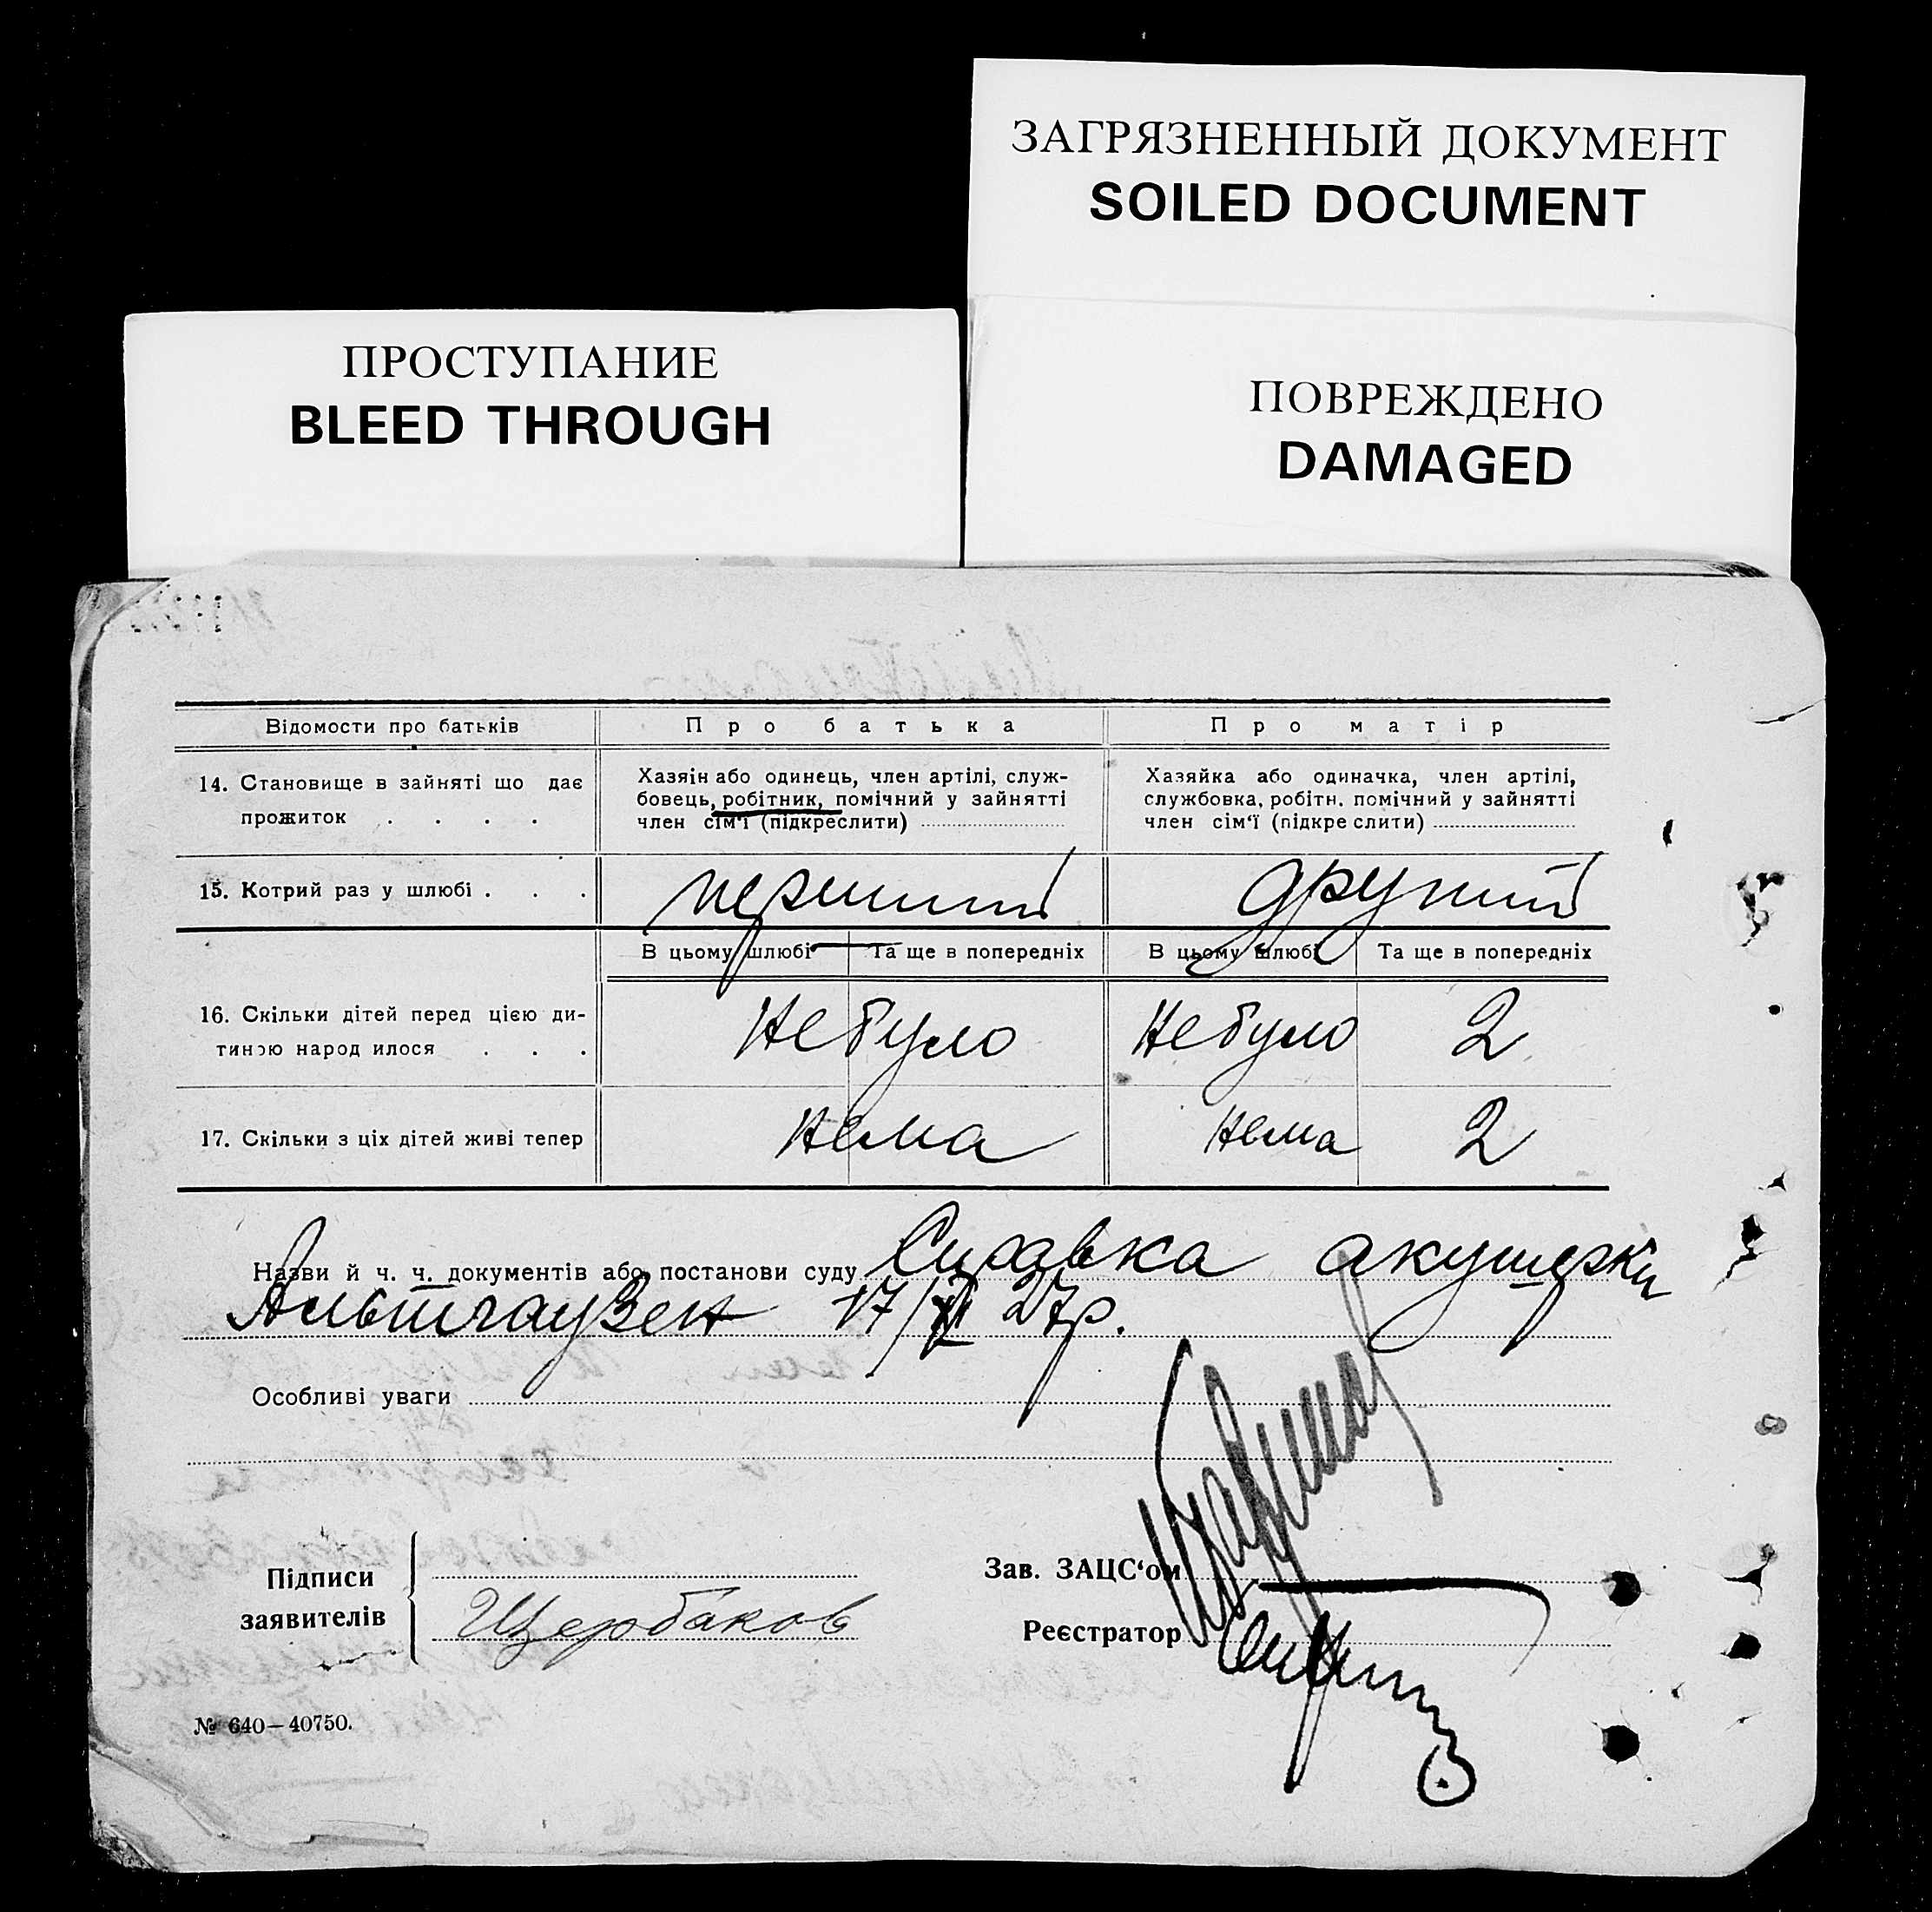 ЗАГРЯЗНЕННЫЙ ДОКУМЕНТ
SOILED DOCUMENT
ПРОСТУПАНИЕ
BLEED THROUGH
ПОВРЕЖДЕНО
DAMAGED
Відомости про батьків Про батька Про матір
14. Становище в зайняті що дає
прожиток . . . .
Хазяін або одинець, член артілі, служ-
бовець, робітник, помічний у зайнятті
член сім'ї (підкреслити)
Хазяйка або одиначка, член артілі,
службовка, робітн. помічний у зайнятті
член сім'ї (підкреслити)
15. Котрий раз у шлюбі . . . перший другий
В цьому шлюбі Та ще в попередніх В цьому шлюбі Та ще в попередніх
16. Скільки дітей перед цією ди-
тиною народилося . . . Небуло Небуло 2
17. Скільки з ціх дітей живі тепер Нема Нема 2
Назви й ч. ч. документів або постанови суду Справка акушерки
Альтгаузен 17/ 27р.
Особливі уваги
Підписи
заявителів
Щербаков
Зав. ЗАЦС'ом
Реєстратор
№ 640—40750.